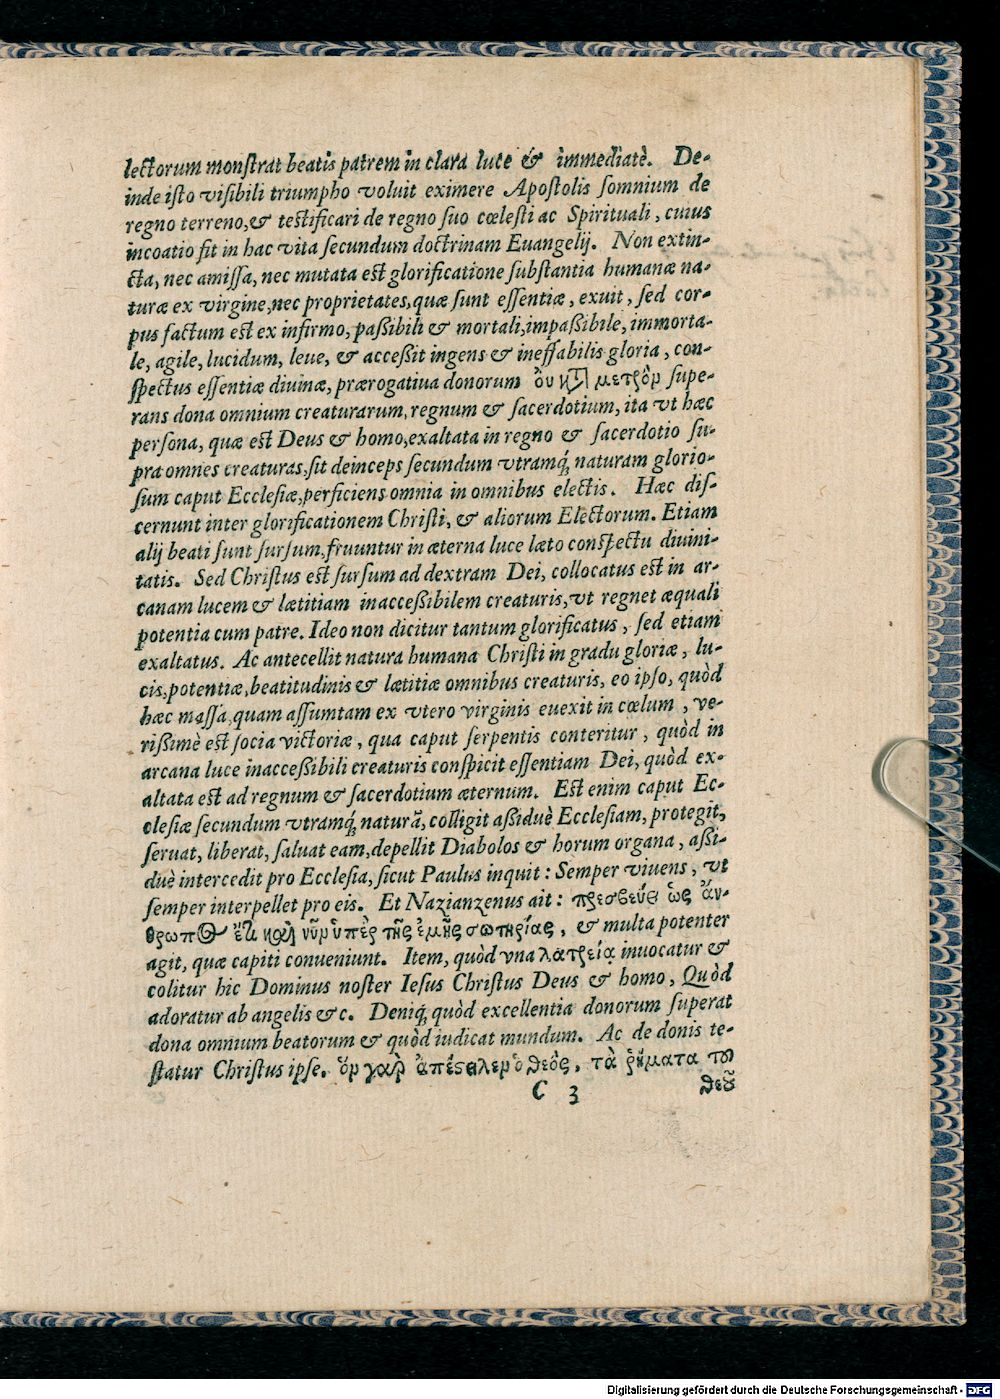 lectorum monstrat beatis patrem in clara luce & immediatè. De-
inde isto visibili triumpho voluit eximere Apostolis somnium de
regno terreno,& testificari de regno suo cœlesti ac Spirituali, cuius
incoatio fit in hac vita secundum doctrinam Euangelij. Non extin-
cta, nec amissa, nec mutata est glorificatione substantia humanæ na-
turæ ex virgine,nec proprietates,quæ sunt essentiæ, exuit, sed cor-
pus factum est ex infirmo, paßibili & mortali,impaßibile, immorta-
le, agile, lucidum, leue, & acceßit ingens & ineffabilis gloria, con-
spectus essentiæ diuinæ, prærogatiua donorum ὀυ κτ μετρὸν supe-
rans dona omnium creaturarum, regnum & sacerdotium, ita vt hæc
persona, quæ est Deus & homo,exaltata in regno & sacerdotio su-
pra omnes creaturas,sit deinceps secundum vtramq́; naturam glorio-
sum caput Ecclesiæ,perficiens omnia in omnibus electis. Hæc dis-
cernunt inter glorificationem Christi, & aliorum Electorum. Etiam
alij beati sunt sursum,fruuntur in æterna luce læto conspectu diuini-
tatis. Sed Christus est sursum ad dextram Dei, collocatus est in ar-
canam lucem & lætitiam inacceßibilem creaturis,vt regnet æquali
potentia cum patre. Ideo non dicitur tantum glorificatus, sed etiam
exaltatus. Ac antecellit natura humana Christi in gradu gloriæ, lu-
cis,potentiæ,beatitudinis & lætitiæ omnibus creaturis, eo ipso, quòd
hæc massa,quam assumtam ex vtero virginis euexit in cœlum, ve-
rißimè est socia victoriæ, qua caput serpentis conteritur, quòd in
arcana luce inacceßibili creaturis conspicit essentiam Dei, quòd ex-
altata est ad regnum & sacerdotium æternum. Est enim caput Ec-
clesiæ secundum vtramq́; naturã, colligit aßiduè Ecclesiam, protegit,
seruat, liberat, saluat eam,depellit Diabolos & horum organa, aßi-
duè intercedit pro Ecclesia, sicut Paulus inquit: Semper viuens, vt
semper interpellet pro eis. Et Nazianzenus ait: πρεσβεύει ὡς ἄν-
θρωπος ἔτι καὶ νῦν ὑπὲρ τῆς ἐμῆς σωτηρίας, & multa potenter
agit, quæ capiti conueniunt. Item, quòd vna λατρεία inuocatur &
colitur hic Dominus noster Iesus Christus Deus & homo, Quòd
adoratur ab angelis &c. Deniq́; quòd excellentia donorum superat
dona omnium beatorum & quòd iudicat mundum. Ac de donis te-
statur Christus ipse. ὃν γὰρ ἀπέστειλεν ὁ θεὸς, τὰ ῥήματα τοῦ
C 3 θεοῦ
Digitalisierung gefördert durch die Deutsche Forschungsgemeinschaft - DFG